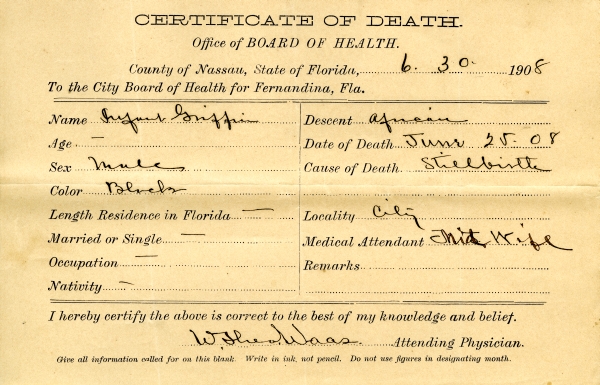 CERTIFICATE OF DEATH.
Office of BOARD OF HEALTH.
County of Nassau, State of Florida, 6. 30. 1908
To the City Board of Health for Fernandina, Fla.
Name Infant Griffin
Descent African
Age —
Date of Death June 25. 08
Sex Male
Cause of Death Stillbirth
Color Black
Length Residence in Florida —
Locality City
Married or Single —
Medical Attendant Mid Wife
Occupation —
Remarks
Nativity —
I hereby certify the above is correct to the best of my knowledge and belief.
W. Theo Waas Attending Physician.
Give all information called for on this blank. Write in ink, not pencil. Do not use figures in designating month.